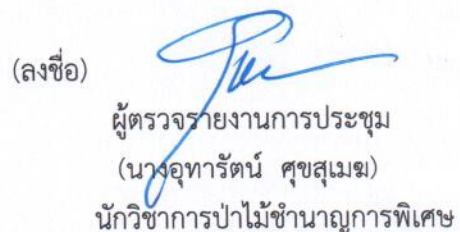 (ลงชื่อ)
ผู้ตรวจรายงานการประชุม
(นางอุทารัตน์ ศุขสุเมฆ)
นักวิชาการป่าไม้ชำนาญการพิเศษ